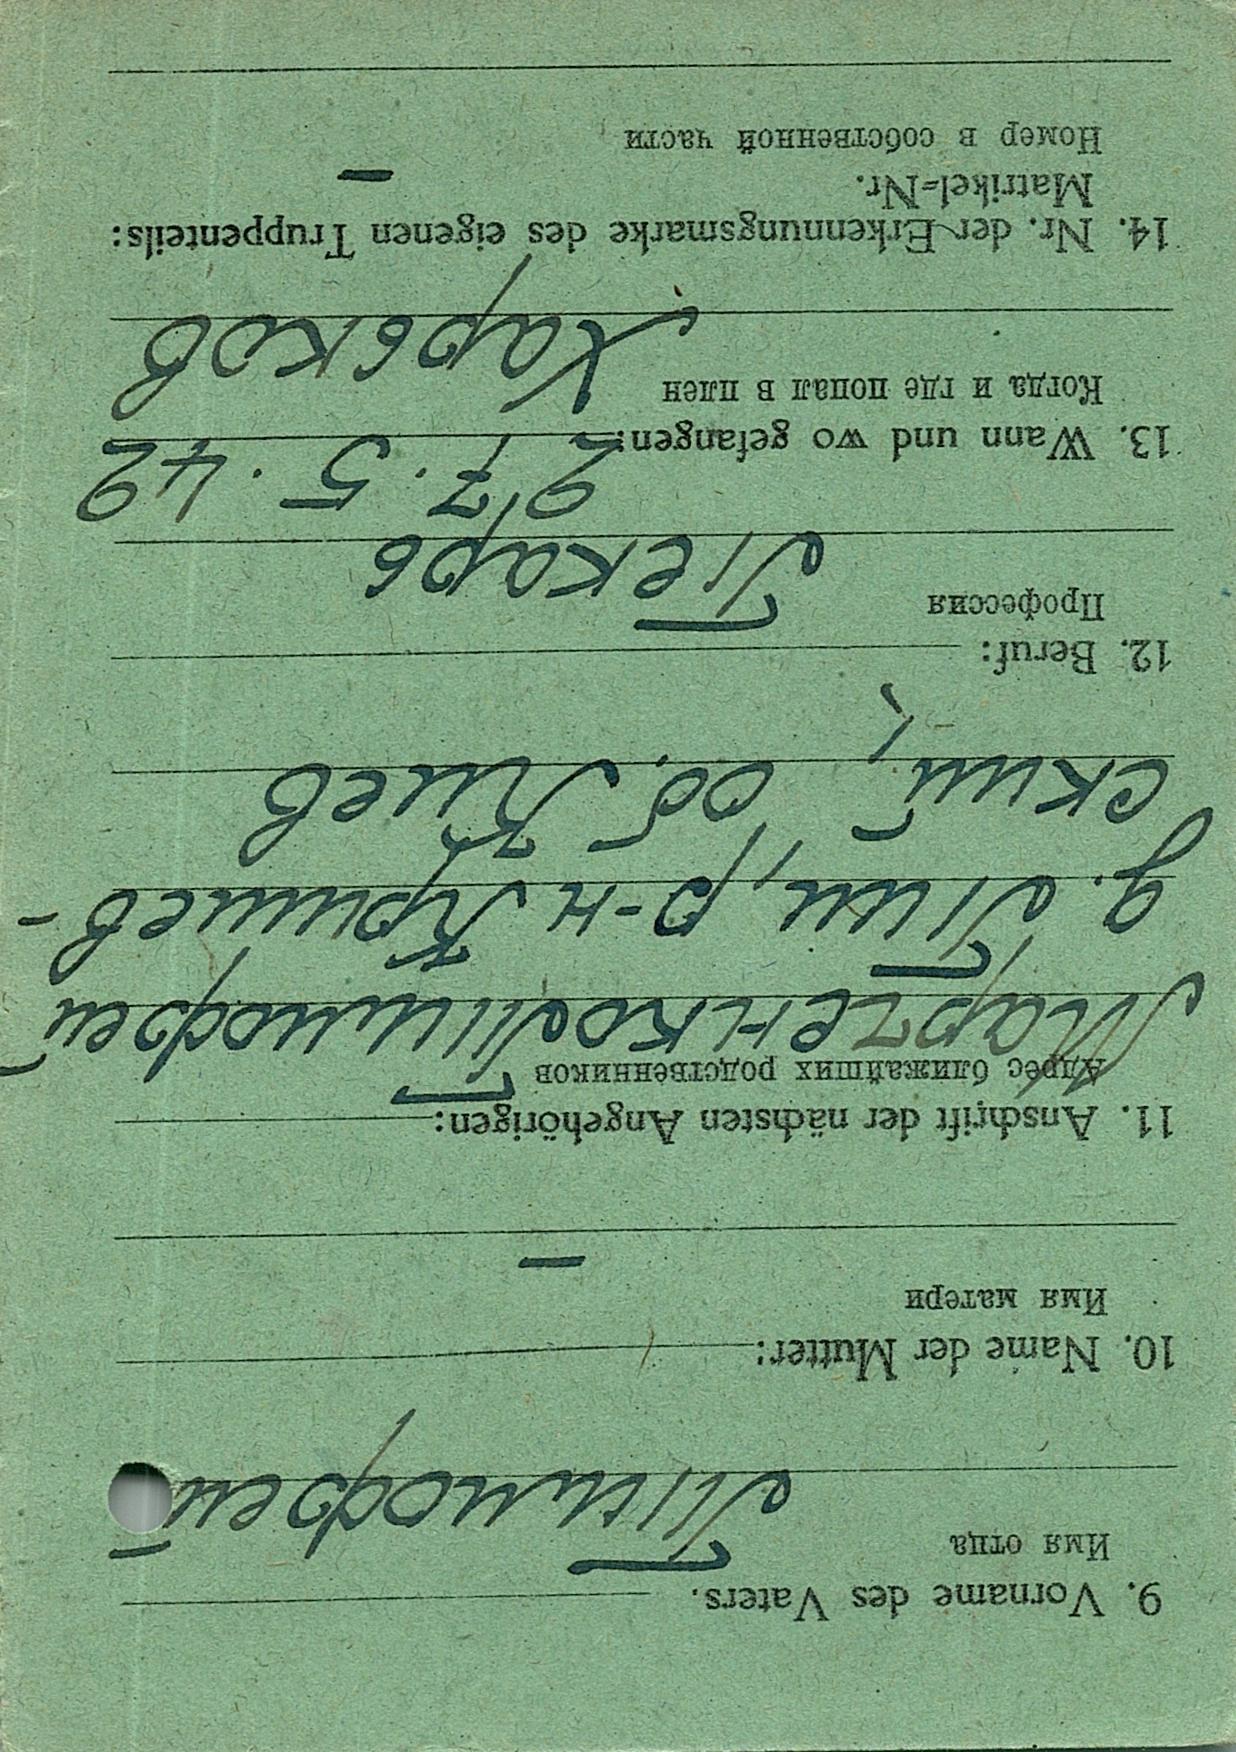 9. Vorname des Vaters.
Имя отца
Тимофей
10. Name der Mutter:
Имя матери
—
11. Anschrift der nächsten Angehörigen:
Адрес ближайших родственников
Марченко Тимофей
д. Пии, р-н Кришев-
ский, об. Киев
12. Beruf:
Профессия
Пекарь
13. Wann und wo gefangen:
27.5.42
Когда и где попал в плен
Харьков
14. Nr. der Erkennungsmarke des eigenen Truppenteils:
Matrikel-Nr.
Номер в собственной части
—